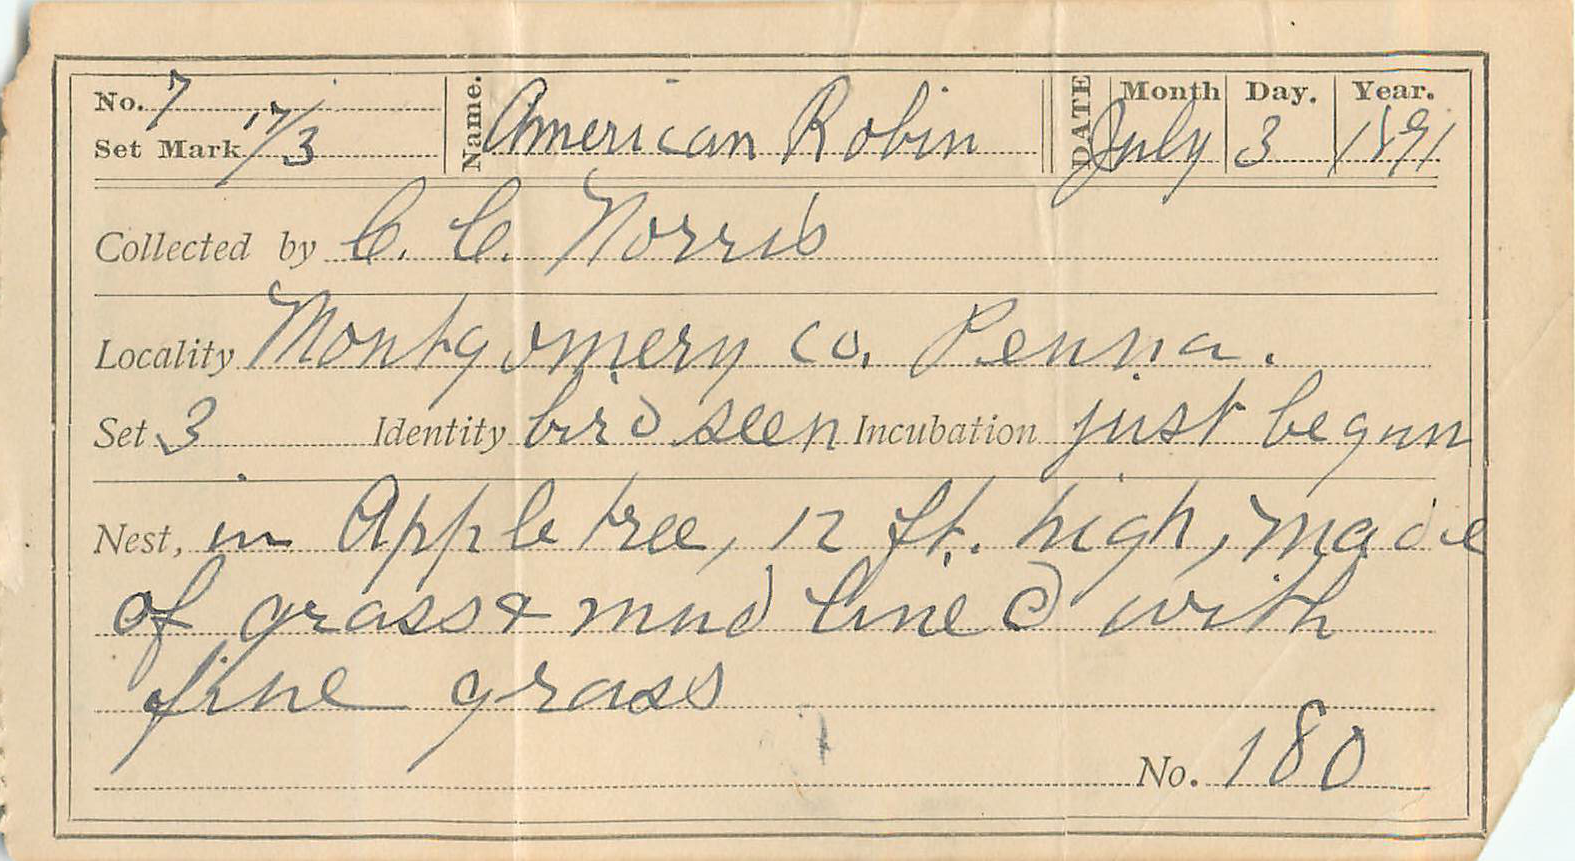 No. 7 Name. American Robin DATE Month Day. Year.
Set Mark 17/3 July 3 1891
Collected by C. C. Norris
Locality Montgomery co. Penna.
Set 3 Identity bird seen Incubation just begun
Nest, in Apple tree, 12 ft. high, made
of grass & mud lined with
fine grass
No. 180